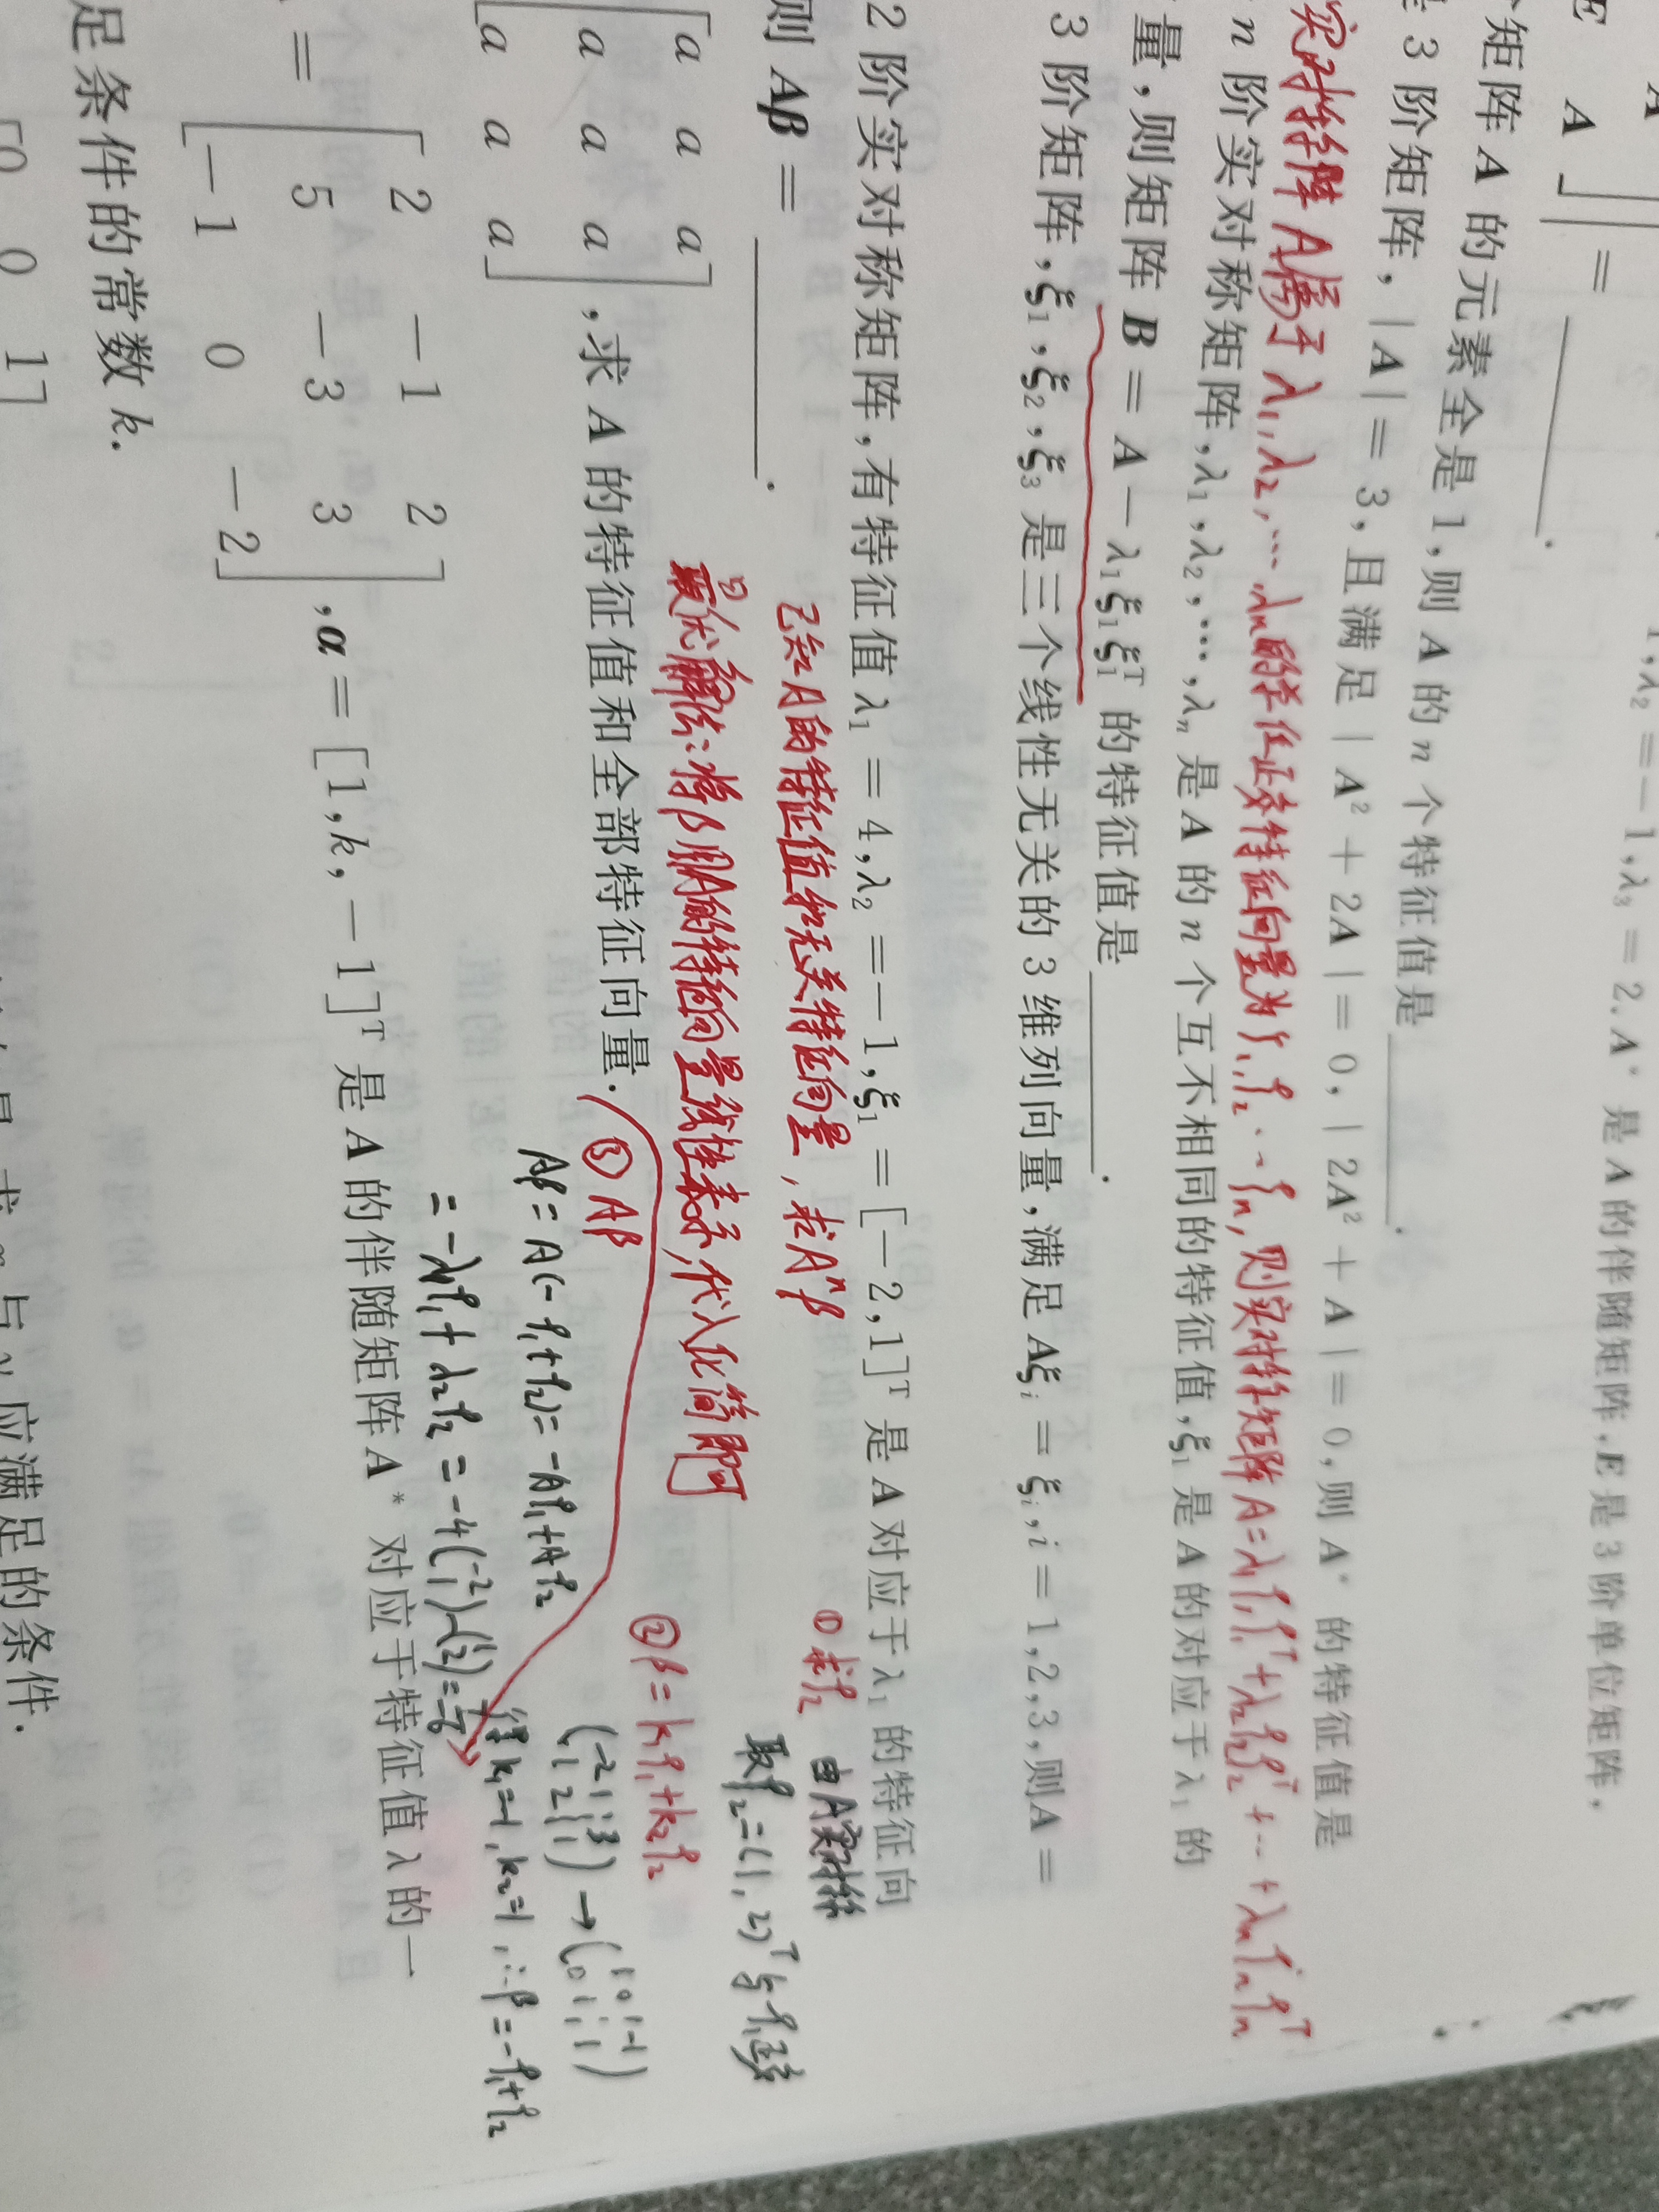 A
E A ]| = ______.
1,λ₂ = −1,λ₃ = 2. A* 是 A 的伴随矩阵,E 是 3 阶单位矩阵,
矩阵 A 的元素全是 1,则 A 的 n 个特征值是______.
3 阶矩阵, |A| = 3, 且满足 |A² + 2A| = 0, |2A² + A| = 0,则 A* 的特征值是
实对称阵A属于λ₁,λ₂,…λₙ的单位正交特征向量为ξ₁,ξ₂…ξₙ,则实对称矩阵A=λ₁ξ₁ξ₁ᵀ+λ₂ξ₂ξ₂ᵀ+…+λₙξₙξₙᵀ
n 阶实对称矩阵,λ₁,λ₂,…,λₙ 是 A 的 n 个互不相同的特征值,ξ₁ 是 A 的对应于 λ₁ 的
量,则矩阵 B = A − λ₁ξ₁ξ₁ᵀ 的特征值是______.
3 阶矩阵,ξ₁,ξ₂,ξ₃ 是三个线性无关的 3 维列向量,满足 Aξᵢ = ξᵢ,i = 1,2,3,则A =
2 阶实对称矩阵,有特征值 λ₁ = 4,λ₂ = −1,ξ₁ = [−2,1]ᵀ 是 A 对应于 λ₁ 的特征向
则 Aβ = ______.
已知A的特征值和无关特征向量,求Aⁿβ
①求ξ₂ 由A实对称
取ξ₂=(1,2)ᵀ与ξ₁正交
最优解法:将β用A的特征向量线性表示,代入化简即可
②β=k₁ξ₁+k₂ξ₂
(−2 1 ⋮ 3
1 2 ⋮ 1) → (1 0 ⋮ −1
0 1 ⋮ 1)
得k₁=−1,k₂=1,∴β=−ξ₁+ξ₂
③Aβ
Aβ=A(−ξ₁+ξ₂)=−Aξ₁+Aξ₂
=−λ₁ξ₁+λ₂ξ₂=−4(−2 1)−(1 2)=7 −6
[a a a
a a a
a a a] ,求 A 的特征值和全部特征向量.
= [2 −1 2
5 −3 3
−1 0 −2] ,α = [1,k,−1]ᵀ 是 A 的伴随矩阵 A* 对应于特征值 λ 的一
足条件的常数 k.
[0 0 1]
应满足的条件.